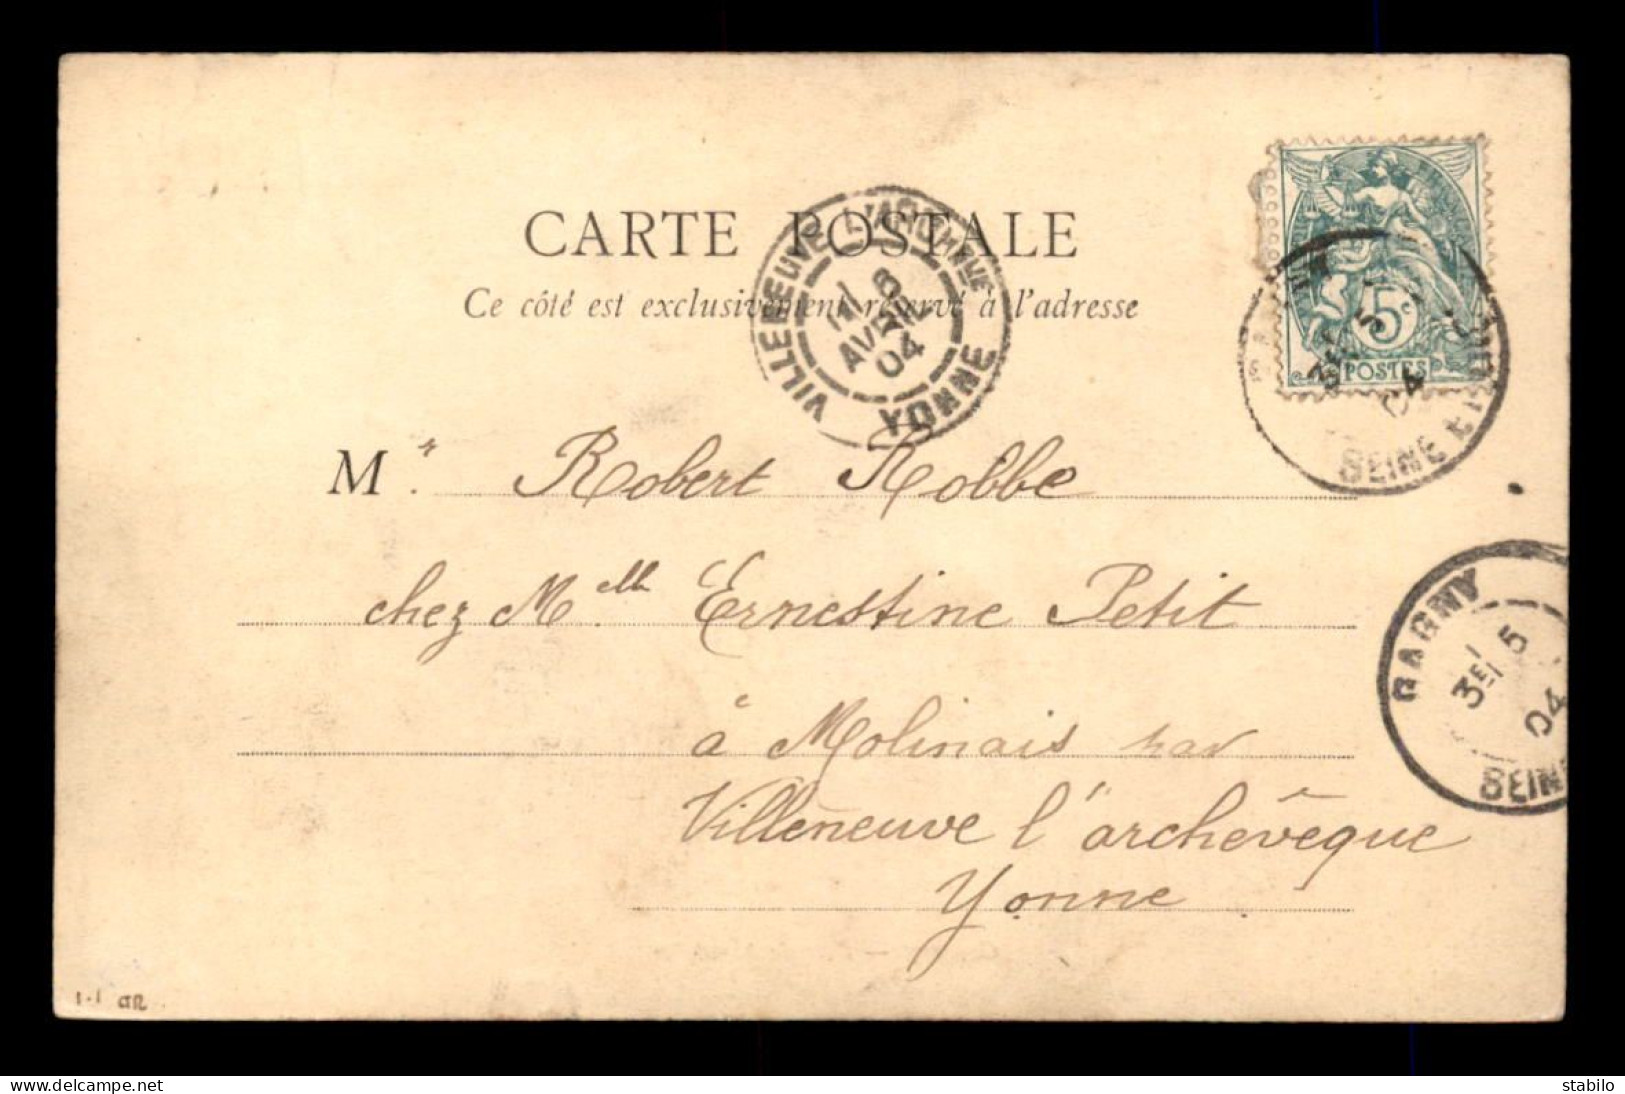 CARTE POSTALE
Ce côté est exclusivement réservé à l'adresse
VILLENEUVE L'ARCHEVE
6
AVRIL
04
YONNE
5c
POSTES
3E 5
04
SEINE
Mr. Robert Robbe
chez Melle Ernestine Petit
à Molinais par
Villeneuve l'archevêque
Yonne
GAGNY
3E 5
04
SEINE
delcampe.net
stabilo